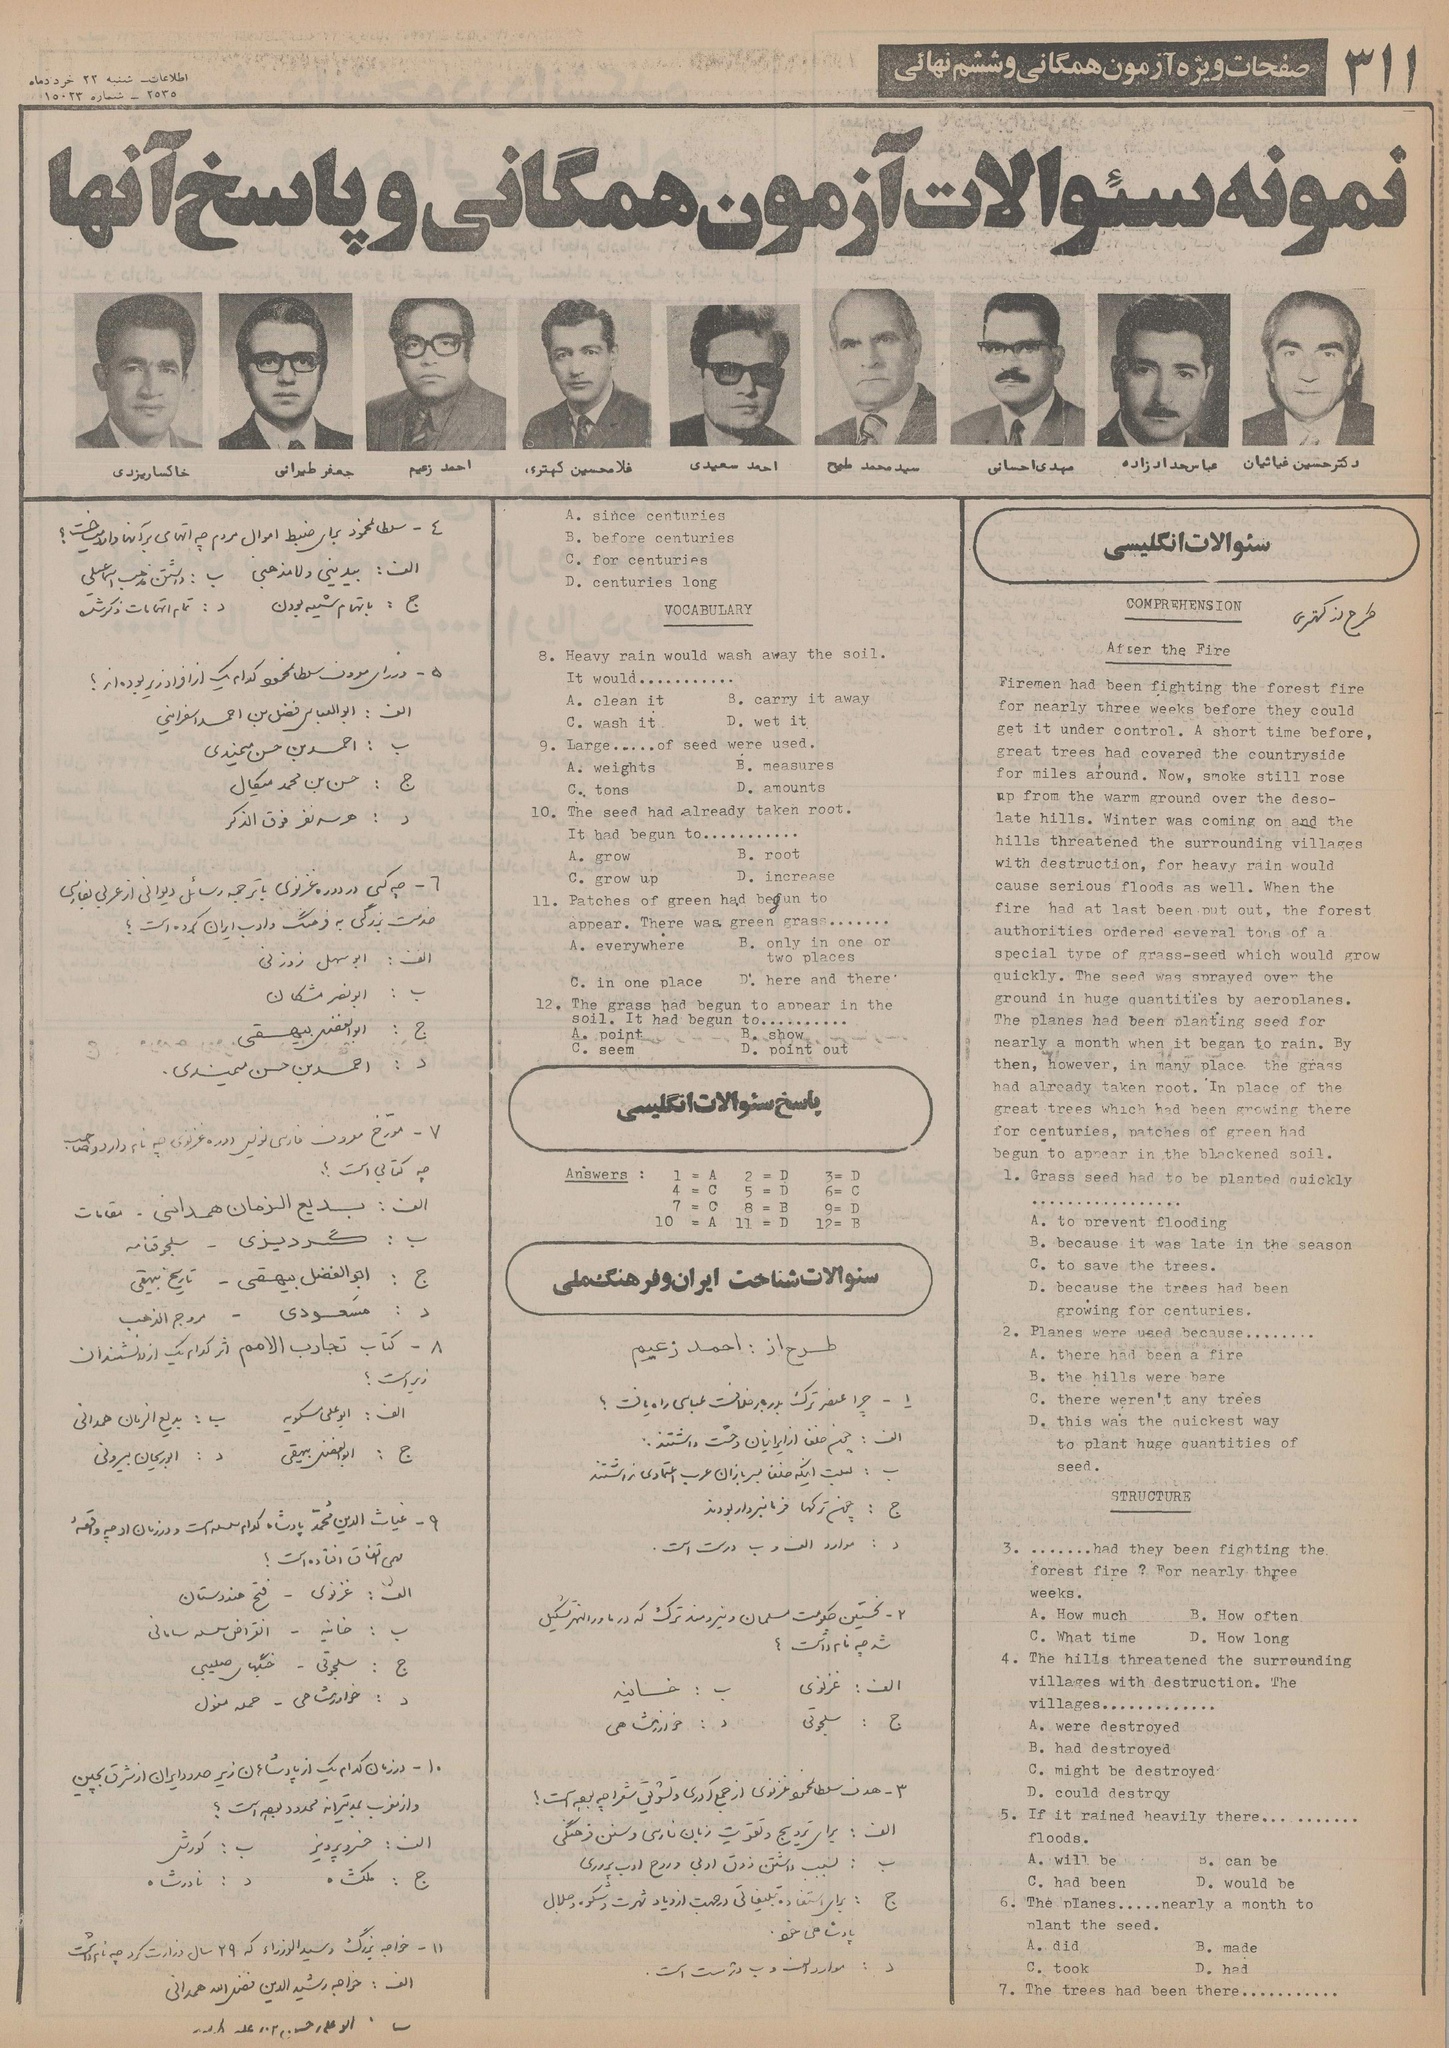 ۳۱۱
صفحات ویژه آزمون همگانی و ششم نهائی
اطلاعات ـ شنبه ۲۲ خرداد ماه
۲۵۳۵ ـ شماره ۱۵۰۲۳
نمونه سئوالات آزمون همگانی و پاسخ آنها
دکتر حسین غیاثیان
عباس حدادزاده
مهدی احسانی
سید محمد
احمد سعیدی
غلامحسین کهتری
احمد زعیم
جعفر طیرانی
خاکسار یزدی
سئوالات انگلیسی
طرح از کهتری
COMPREHENSION
After the Fire
Firemen had been fighting the forest fire
for nearly three weeks before they could
get it under control. A short time before,
great trees had covered the countryside
for miles around. Now, smoke still rose
up from the warm ground over the deso-
late hills. Winter was coming on and the
hills threatened the surrounding villages
with destruction, for heavy rain would
cause serious floods as well. When the
fire had at last been put out, the forest
authorities ordered several tons of a
special type of grass-seed which would grow
quickly. The seed was sprayed over the
ground in huge quantities by aeroplanes.
The planes had been planting seed for
nearly a month when it began to rain. By
then, however, in many place the grass
had already taken root. In place of the
great trees which had been growing there
for centuries, patches of green had
begun to appear in the blackened soil.
1. Grass seed had to be planted quickly
................
A. to prevent flooding
B. because it was late in the season
C. to save the trees.
D. because the trees had been
growing for centuries.
2. Planes were used because........
A. there had been a fire
B. the hills were bare
C. there weren't any trees
D. this was the quickest way
to plant huge quantities of
seed.
STRUCTURE
3. .......had they been fighting the
forest fire ? For nearly three
weeks.
A. How much B. How often
C. What time D. How long
4. The hills threatened the surrounding
villages with destruction. The
villages.............
A. were destroyed
B. had destroyed
C. might be destroyed
D. could destroy
5. If it rained heavily there... .......
floods.
A. will be B. can be
C. had been D. would be
6. The planes.....nearly a month to
plant the seed.
A. did B. made
C. took D. had
7. The trees had been there...........
A. since centuries
B. before centuries
C. for centuries
D. centuries long
VOCABULARY
8. Heavy rain would wash away the soil.
It would...........
A. clean it B. carry it away
C. wash it D. wet it
9. Large.....of seed were used.
A. weights B. measures
C. tons D. amounts
10. The seed had already taken root.
It had begun to...........
A. grow B. root
C. grow up D. increase
11. Patches of green had begun to
appear. There was green grass.......
A. everywhere B. only in one or
two places
C. in one place D. here and there
12. The grass had begun to appear in the
soil. It had begun to..........
A. point B. show
C. seem D. point out
پاسخ سئوالات انگلیسی
Answers : 1 = A 2 = D 3= D
4 = C 5 = D 6= C
7 = C 8 = B 9= D
10 = A 11 = D 12= B
سئوالات شناخت ایران و فرهنگ ملی
طرح از : احمد زعیم
۱ - چرا عنصر ترک بدربار خلافت عباسی راه یافت ؟
الف : چون خلفا از ایرانیان وحشت داشتند .
ب : بعلت اینکه خلفا بسربازان عرب اعتمادی نداشتند
ج : چون ترکها فرمانبردار بودند
د : موارد الف و ب درست است .
۲ - نخستین حکومت مسلمان و نیرومند ترک که در ماوراءالنهر تشکیل
شد چه نام داشت ؟
الف : غزنوی ب : خانیه
ج : سلجوقی د : خوارزمشاهی
۳ - هدف سلطان محمود غزنوی از جمع آوری و تشویق شعرا چه بوده است ؟
الف : برای ترویج و تقویت زبان فارسی و سنن فرهنگی
ب : بسبب داشتن ذوق ادبی و روح ادب پروری
ج : برای استفاده تبلیغاتی در جهت ازدیاد شهرت و شکوه و جلال
پادشاهی خود .
د : موارد الف و ب درست است .
۴ - سلطان محمود برای ضبط اموال مردم چه اتهامی بر آنها وارد میساخت ؟
الف : بیدینی و لامذهبی ب : داشتن مذهب اسماعیلی
ج : باتهام شیعه بودن د : تمام اتهامات ذکر شده
۵ - وزرای معروف سلطان محمود کدام یک از افراد زیر بوده اند ؟
الف : ابوالعباس فضل بن احمد اسفراینی
ب : احمد بن حسن میمندی
ج : حسن بن محمد میکال
د : هر سه نفر فوق الذکر
۶ - چه کسی در دوره غزنوی با ترجمه رسائل دیوانی از عربی بفارسی
خدمت بزرگی به فرهنگ و ادب ایران کرده است ؟
الف : ابوسهل زوزنی
ب : ابونصر مشکان
ج : ابوالفضل بیهقی
د : احمد بن حسن میمندی .
۷ - مورخ معروف فارسی نویس دوره غزنوی چه نام دارد و صاحب
چه کتابی است ؟
الف : بدیع الزمان همدانی - مقامات
ب : گردیزی - سلجوقنامه
ج : ابوالفضل بیهقی - تاریخ بیهقی
د : مسعودی - مروج الذهب
۸ - کتاب تجارب الامم اثر کدام یک از دانشمندان
زیر است ؟
الف : ابوعلی مسکویه ب : بدیع الزمان همدانی
ج : ابوالفضل بیهقی د : ابوریحان بیرونی
۹ - غیاث الدین محمد پادشاه کدام سلسله است و در زمان او چه واقعهٔ
مهمی اتفاق افتاده است ؟
الف : غزنوی - فتح هندوستان
ب : خانیه - انقراض سلسله سامانی
ج : سلجوقی - جنگهای صلیبی
د : خوارزمشاهی - حمله مغول
۱۰ - در زمان کدام یک از پادشاهان زیر حدود ایران از شرق بچین
و از مغرب بمدیترانه محدود بوده است ؟
الف : خسرو پرویز ب : کورش
ج : ملکشاه د : نادرشاه
۱۱ - خواجه بزرگ و سید الوزراء که ۲۹ سال وزارت کرد چه نام داشت
الف : خواجه رشید الدین فضل الله همدانی